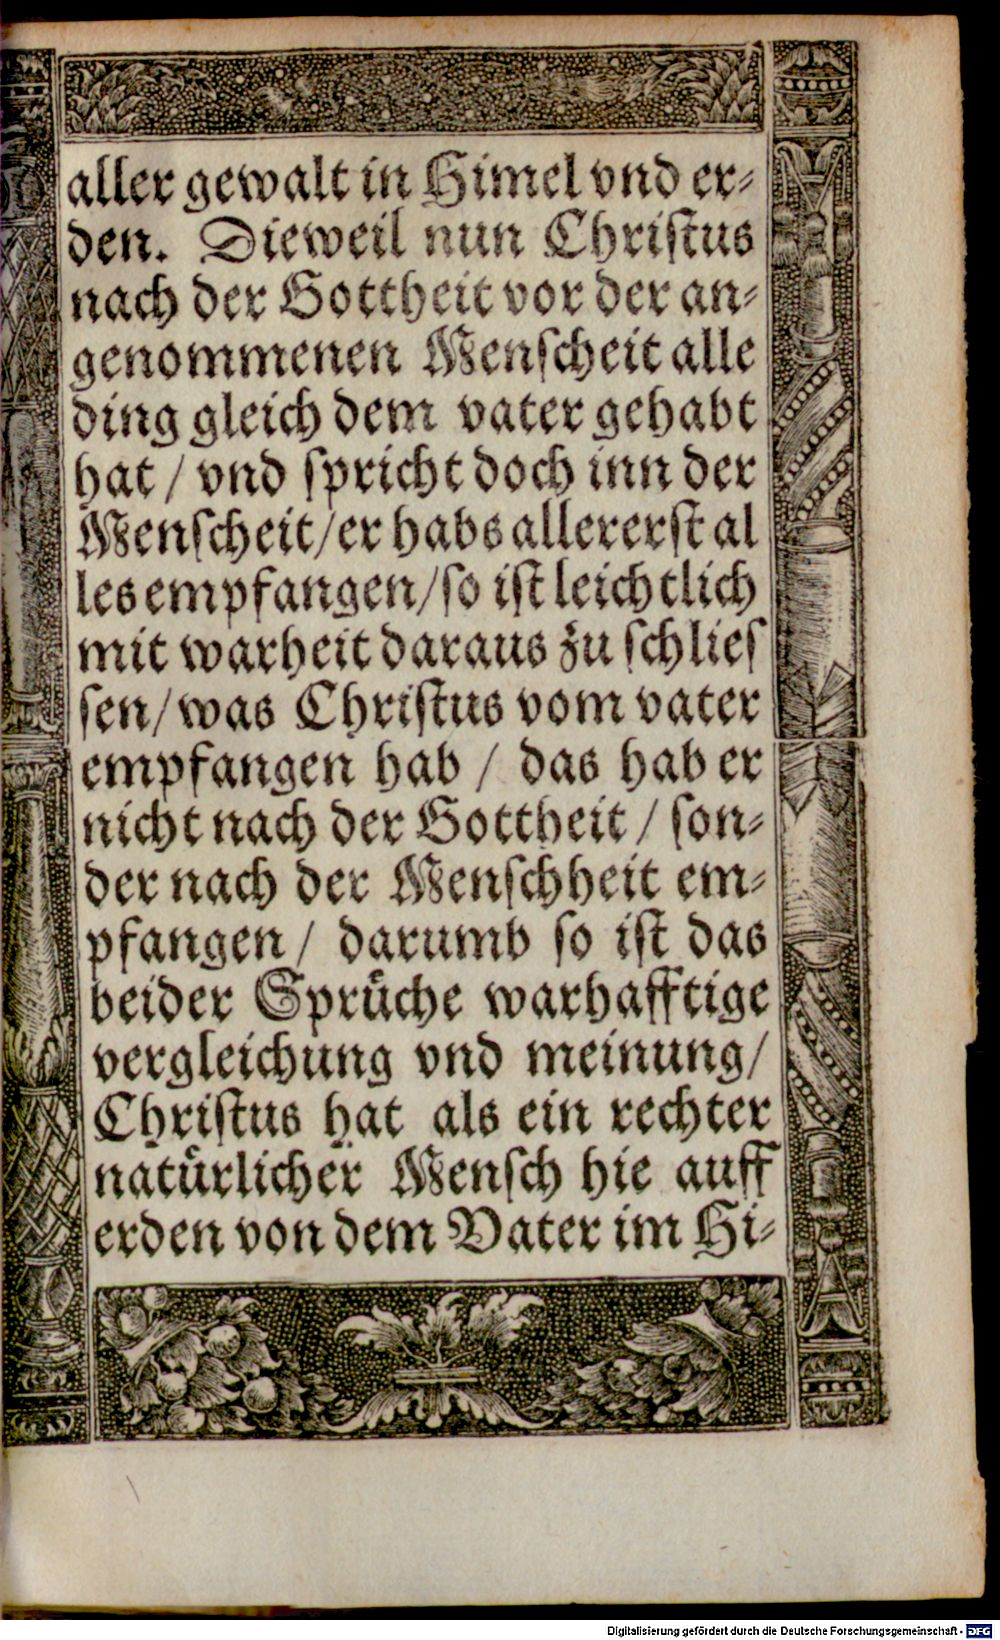 aller gewalt in Himel vnd er⸗
den. Dieweil nun Christus
nach der Gottheit vor der an⸗
genommenen Menscheit alle
ding gleich dem vater gehabt
hat / vnd spricht doch inn der
Menscheit/er habs allererst al
les empfangen/so ist leichtlich
mit warheit daraus zu schlies
sen/was Christus vom vater
empfangen hab / das hab er
nicht nach der Gottheit / son⸗
der nach der Menschheit em⸗
pfangen/ darumb so ist das
beider Sprüche warhafftige
vergleichung vnd meinung/
Christus hat als ein rechter
natürlicher Mensch hie auff
erden von dem Vater im Hi⸗
Digitalisierung gefördert durch die Deutsche Forschungsgemeinschaft - DFG